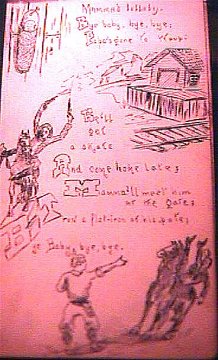 Mamma's lullaby.
Bye baby, bye, bye;
gone to
He'll
get
a skate
And come home late;
Mamma'll meet him
at the gate;
a flat-iron at his pate;
Bye Baby, bye, bye.